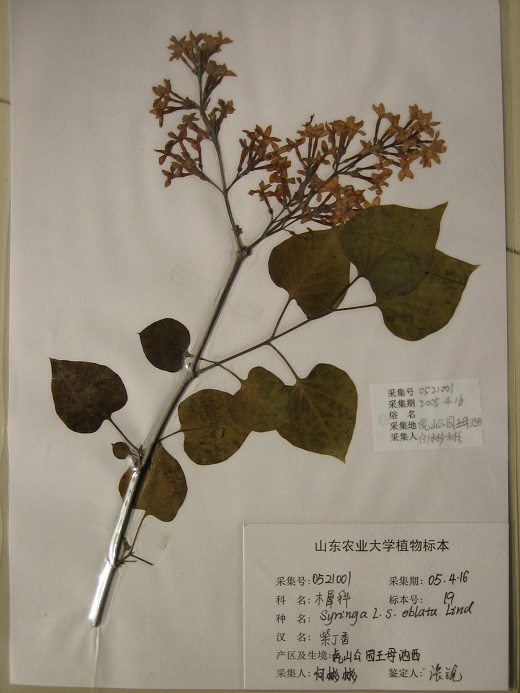 采集号 0521001
采集期 2005.4.16
俗 名
采集地 虎山公园王母池西
采集人
山东农业大学植物标本
采集号: 0521001 采集期: 05.4.16
科 名: 木犀科 标本号: 19
种 名: Syringa L. S. oblata Lind
汉 名: 紫丁香
产区及生境: 虎山公园王母池西
采集人: 何彬彬 鉴定人: